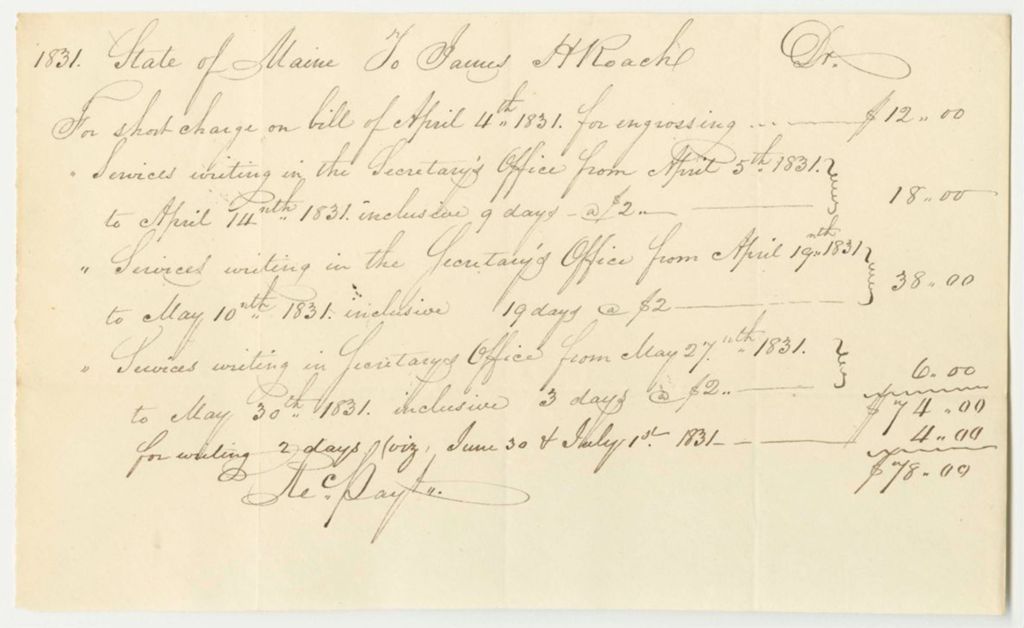 1831. State of Maine To James H Roach Dr.
For short charge on bill of April 4th 1831. for engrossing ... $12.00
" Services writing in the Secretary's Office from April 5th 1831.
to April 14nth 1831. inclusive 9 days - @ $2.. 18.00
" Services writing in the Secretary's Office from April 19nth 1831
to May 10nth 1831. inclusive 19 days @ $2 38.00
" Services writing in Secretarys Office from May 27nth 1831.
to May 30th 1831. inclusive 3 days @ $2.. 6.00
$74.00
for writing 2 days (viz, June 30 & July 1st 1831 4.00
$78.00
Rec. Payt.